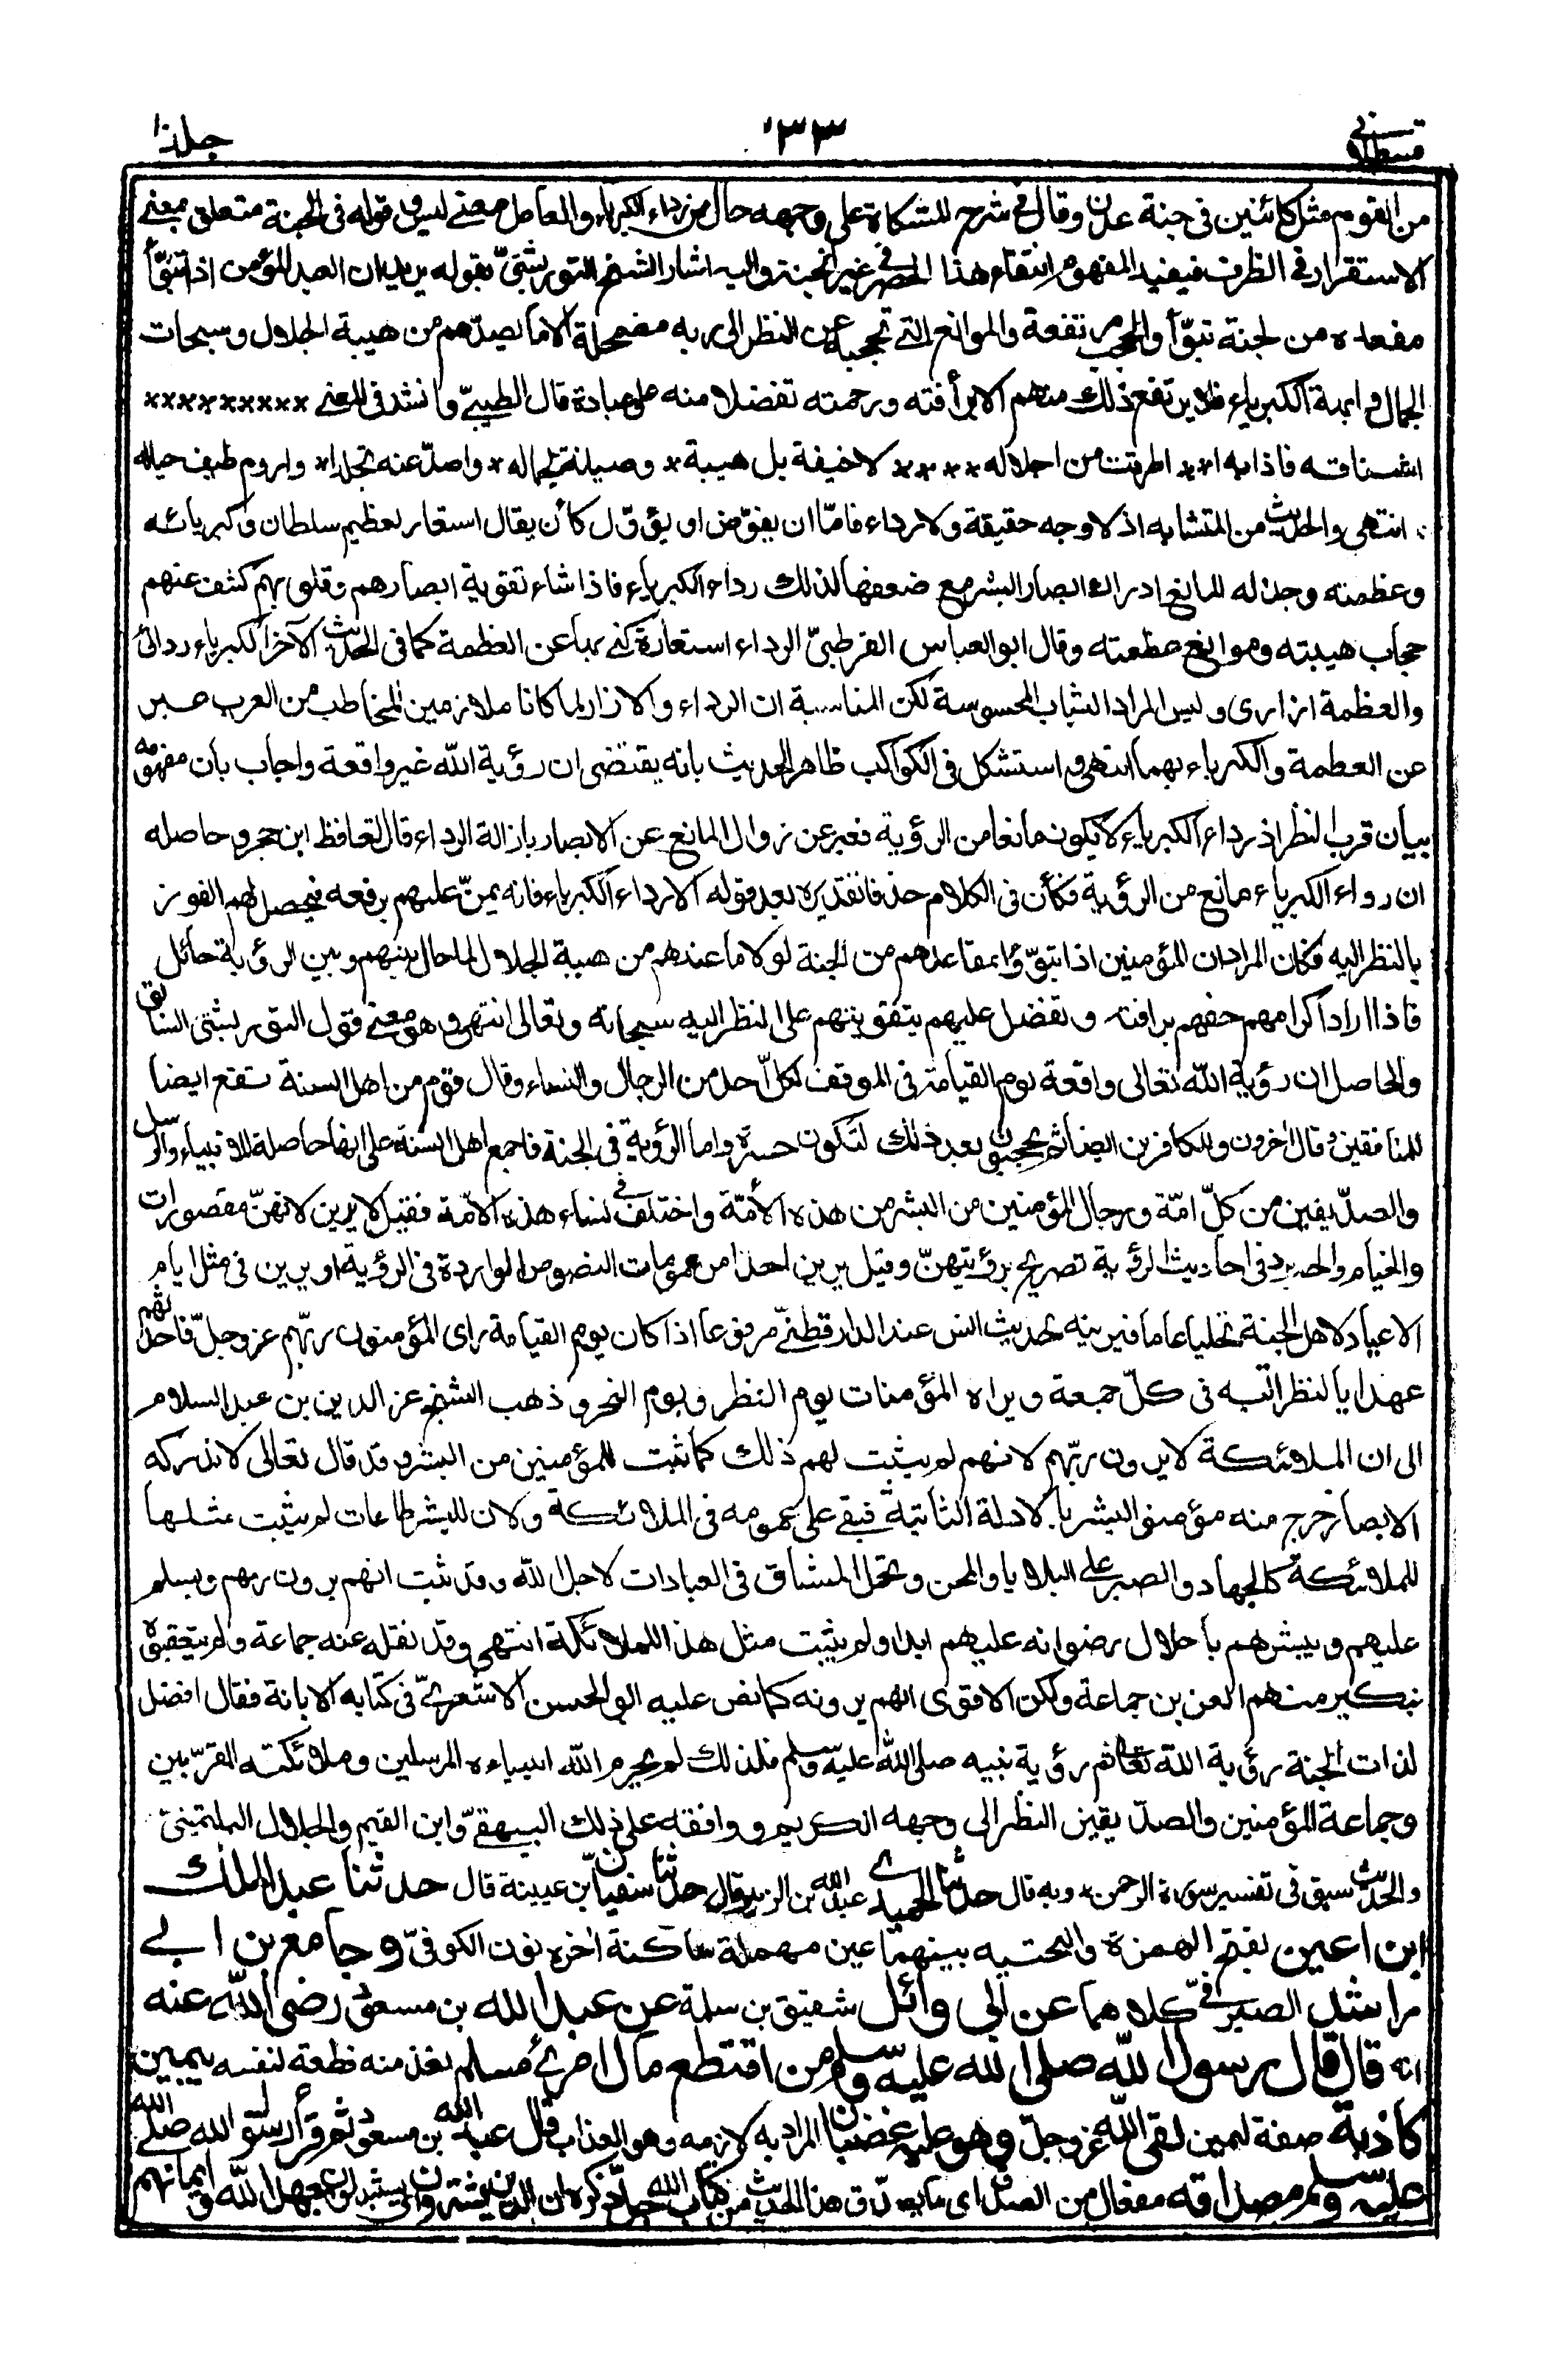 قسطلاني ٣٣ جلد ١٠
من القوم مثل كائنين في جنة عدن وقال في شرح المشكاة على وجهه حال من رداء الكبرياء والعامل معنى ليس وقوله في الجنة متعلق بمعنى
الاستقرار في الظرف فيفيد المفهوم انتفاء هذا الحصر في غير الجنة واليه اشار الشيخ التوربشتيّ بقوله يريد ان العبد المؤمن اذا تبوّأ
مقعده من الجنة تبوّأ والحجب مرتفعة والموانع التي تحجبه عن النظر الى ربه مضمحلة الا ما يصدّهم من هيبة الجلال وسبحات
الجمال وابهة الكبرياء فلا يرتفع ذلك منهم الا برأفته ورحمته تفضلا منه على عباده قال الطيبيّ وانشد في المعنى ××××××××××
اشتاقه فاذا بدا×× اطرقت من اجلاله ×××× لا خيفة بل هيبة× وصيانة لجماله× واصدّ عنه تجلدا× واروم طيف خياله
انتهى والحديث من المتشابه اذ لا وجه حقيقة ولا رداء فامّا ان يفوّض او يؤوّل كأن يقال استعار لعظيم سلطانه وكبريائه
وعظمته وجلاله المانع ادراك ابصار البشر مع ضعفها لذلك رداء الكبرياء فاذا شاء تقوية ابصارهم وقلوبهم كشف عنهم
حجاب هيبته وموانع عظمته وقال ابو العباس القرطبيّ الرداء استعارة كنى بها عن العظمة كما في الحديث الآخر الكبرياء ردائى
والعظمة ازارى وليس المراد الثياب المحسوسة لكن المناسبة ان الرداء والازار لما كانا ملازمين للمخاطب من العرب عبر
عن العظمة والكبرياء بهما انتهى واستشكل في الكواكب ظاهر الحديث بانه يقتضى ان رؤية الله غير واقعة واجاب بأن مفهومه
بيان قرب النظر اذ رداء الكبرياء لا يكون مانعا من الرؤية فعبر عن زوال المانع عن الابصار بازالة الرداء قال الحافظ ابن حجر وحاصله
ان رداء الكبرياء مانع من الرؤية فكأن في الكلام حذفا تقديره بعد قوله الا رداء الكبرياء فانه يمنّ عليهم برفعه فيحصل لهم الفوز
بالنظر اليه فكان المراد ان المؤمنين اذا تبوّؤا مقاعدهم من الجنة لولا ما عندهم من هيبة الجلال لما حال بينهم وبين الرؤية حائل
فاذا اراد اكرامهم حفهم برافته وتفضل عليهم بتقويتهم على النظر اليه سبحانه وتعالى انتهى وهو معنى قول التوربشتى السابق
والحاصل ان رؤية الله تعالى واقعة يوم القيامة في الموقف لكلّ احد من الرجال والنساء وقال قوم من اهل السنة تقع ايضا
للمنافقين وقال اخرون وللكافرين ايضا ثم يحجبون بعد ذلك لتكون حسرة واما الرؤية في الجنة فاجمع اهل السنة على انها حاصلة للانبياء والرسل
والصدّيقين من كلّ امّة ورجال المؤمنين من البشر من هذه الأمّة واختلف في نساء هذه الامّة فقيل لا يرين لانهنّ مقصورات
والخيام ولم يرد في احاديث الرؤية تصريح برؤيتهنّ وقيل يرين اخذا من عمومات النصوص الواردة في الرؤية او يرين في مثل ايام
الاعياد لاهل الجنة تجليا عاما فيرينه لحديث انس عند الدارقطنيّ مرفوعا اذا كان يوم القيامة راى المؤمنون ربّهم عز وجلّ فاحدثهم
عهدا بالنظر اليه في كلّ جمعة ويراه المؤمنات يوم الفطر ويوم النحر وذهب الشيخ عز الدين بن عبد السلام
الى ان الملائكة لا يرون ربّهم لانهم لم يثبت لهم ذلك كما ثبت للمؤمنين من البشر وقد قال تعالى لا تدركه
الابصار خرج منه مؤمنو البشر بالادلة الثابتة فبقى على عمومه في الملائكة ولان للبشر طاعات لم يثبت مثلها
للملائكة كالجهاد والصبر على البلايا والمحن وتحمّل المشاق في العبادات لاجل الله وقد ثبت انهم يرون ربهم ويسلم
عليهم ويبشرهم باحلال رضوانه عليهم ابدا ولم يثبت مثل هذا للملائكة انتهى وقد نقله عنه جماعة ولم يتعقبوه
بنكير منهم العز بن جماعة ولكن الاقوى انهم يرونه كما نص عليه ابو الحسن الاشعريّ في كتابه الابانة فقال افضل
لذات الجنة رؤية الله تعالى ثم رؤية نبيه صلى الله عليه وسلم فلذلك لم يحرم الله انبياءه المرسلين وملائكته المقرّبين
وجماعة المؤمنين والصدّيقين النظر الى وجهه الكريم ووافقه على ذلك البيهقيّ وابن القيم والجلال البلقينيّ
والحديث سبق في تفسير سورة الرحمن× وبه قال حدثنا الحميدي عبد الله بن الزبير قال حدثنا سفيان بن عيينة قال حدثنا عبد الملك
ابن اعين بفتح الهمزة والتحتيه بينهما عين مهملة ساكنة اخره نون الكوفيّ وجامع بن ابي
راشد الصيرفيّ كلاهما عن ابي وائل شقيق بن سلمة عن عبد الله بن مسعود رضي الله عنه
انه قال قال رسول الله صلى الله عليه وسلم من اقتطع مال امرئ مسلم اخذ منه قطعة لنفسه بيمين
كاذبة صفة ليمين لقي الله عز وجلّ وهو عليه غضبان المراد به لازمه وهو العذاب قال عبد الله بن مسعود ثم قرأ رسول الله صلى الله
عليه وسلم مصداقه مفعال من الصدق اى ما يصدّق هذا الحديث من كتاب الله جلّ ذكره ان الذين يشترون اى يستبدلون بعهد الله وايمانهم